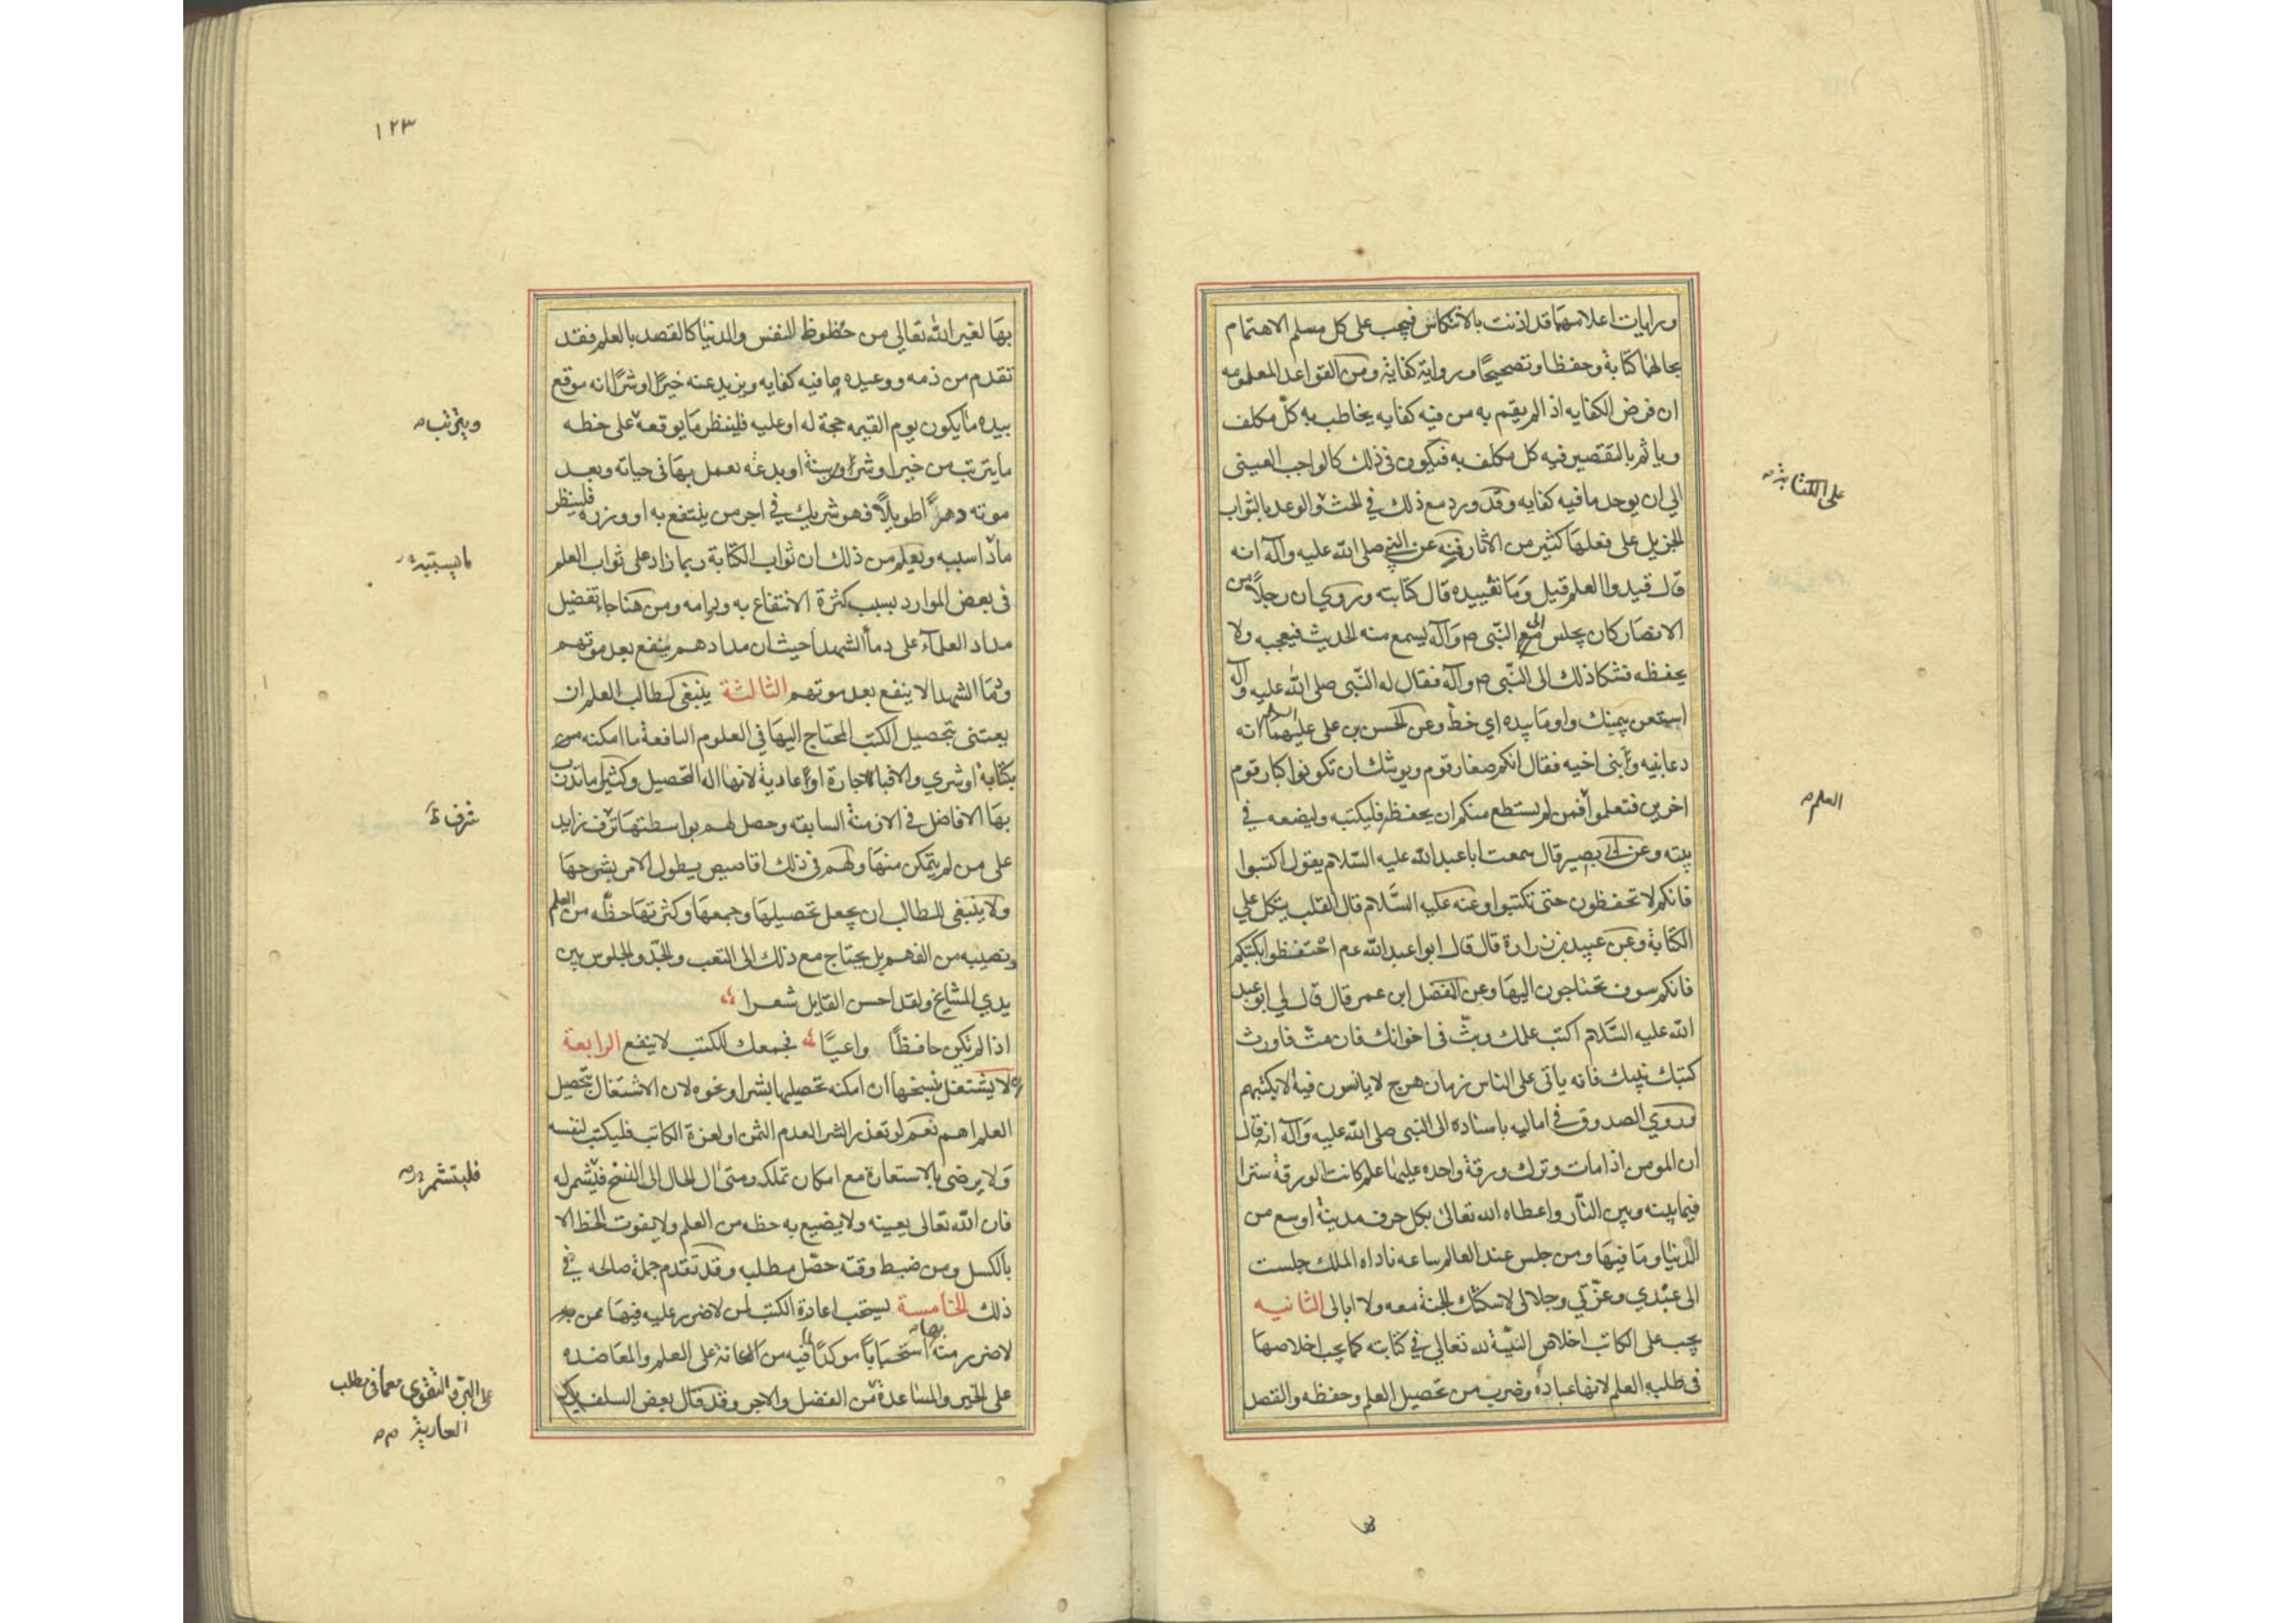 ورايات اعلامهما قد اذنت بالانتكاس فيجب على كل مسلم الاهتمام
بحالهما كتابة وحفظا وتصحيحا ورواية كفاية ومن القواعد المعلومه
ان فرض الكفايه اذا لم يقم به من فيه كفايه يخاطب به كل مكلف
وياثم بالتقصير فيه كل مكلف به فيكون في ذلك كالواجب العيني
الي ان يوجد ما فيه كفايه وقد ورد مع ذلك في الحث والوعد بالثواب
على الكتابة
الجزيل على فعلها كثير من الاثار فمنه عن النبي صلى الله عليه وآله انه
قال قيدوا العلم قيل وما تقييده قال كتابته وروي ان رجلا من
الانصار كان يجلس الى النبي ص وآله ليسمع منه الحديث فيعجبه ولا
يحفظه فشكا ذلك الى النبي ص وآله فقال له النبي صلى الله عليه وآله
استعن بيمينك واوما بيده اي خط وعن الحسن بن على عليهما انه
دعا بنيه وبنى اخيه فقال انكم صغار قوم ويوشك ان تكونوا كبار قوم
اخرين فتعلموا فمن لم يستطع منكم ان يحفظه فليكتبه وليضعه في
العلم
بيته وعن ابي بصير قال سمعت ابا عبد الله عليه السلام يقول اكتبوا
فانكم لا تحفظون حتى تكتبوا وعنه عليه السلام قال القلب يتكل على
الكتابة وعن عبيد بن زرارة قال قال ابوا عبد الله عم احتفظوا بكتبكم
فانكم سوف تحتاجون اليها وعن الفضل ابن عمر قال قال لي ابو عبد
الله عليه السلام اكتب علمك وبث في اخوانك فان مت فاورث
كتبك بنيك فانه ياتي على الناس زمان هرج لا يانسون فيه الا بكتبهم
وروي الصدوق في اماليه باسناده الى النبي صلى الله عليه وآله انه قال
ان المومن اذا مات وترك ورقة واحده عليها علم كانت الورقة سترا
فيما بينه وبين النار واعطاه الله تعالى بكل حرف مدينة اوسع من
الدنيا وما فيها ومن جلس عند العالم ساعه ناداه الملك جلست
الى عبدي وعزتي وجلالي لاسكنك الجنة معه ولا ابالى الثانيه
يجب على الكاتب اخلاص النية لله تعالي في كتابته كما يجب اخلاصها
في طلبه العلم لانها عبادة وضرب من تحصيل العلم وحفظه والقصد
١٢٣
بها لغير الله تعالي من حظوظ النفس والدنيا كالقصد بالعلم فقد
تقدم من ذمه ووعيده ما فيه كفايه ويزيد عنه خيرا او شرا انه موقع
بيده ما يكون يوم القيمه حجة له او عليه فلينظر ما يوقعه على خطه
ويترتب
ما يترتب من خير او شر او سنة او بدعه يعمل بها في حياته وبعد
موته دهرا طويلا فهو شريك في اجر من ينتفع به او وزره فلينظر
ماذا سببه ويعلم من ذلك ان ثواب الكتابة ربما زاد على ثواب العلم
في بعض الموارد بسبب كثرة الانتفاع به ودوامه ومن هنا جاء تفضيل
مداد العلمآء على دمأ الشهدا حيث ان مدادهم ينفع بعد موتهم
ودمأ الشهدا لا ينفع بعد موتهم الثالثة ينبغي لطالب العلم ان
يعتني بتحصيل الكتب المحتاج اليها في العلوم النافعة ما امكنه من
بكتابة او شري والا فباجارة او عادية لانها اله التحصيل وكثيرا ما تدرب
بها الافاضل في الازمنة السابقه وحصل لهم بواسطتها ترف زايد
شرف ظ
على من لم يتمكن منها ولهم في ذلك اقاصيص يطول الامر بشرحها
ولا ينبغي للطالب ان يجعل تحصيلها وجمعها وكثرتها حظه من العلم
ونصيبه من الفهم بل يحتاج مع ذلك الى التعب والجد والجلوس بين
يدي المشايخ ولقد احسن القايل شعرا
اذا لم تكن حافظا واعيا فجمعك للكتب لا ينفع الرابعة
لا يشتغل بنسخها ان امكنه تحصيلها بشرا ونحوه لان الاشتغال بتحصيل
العلم اهم نعم لو تعذر الشرا لعدم الثمن او لعزة الكاتب فليكتب لنفسه
ولا يرضى بالاستعارة مع امكان تملكه ومتى ال الحال الى النسخ فليشمر له
فليتشمر
فان الله تعالى يعينه ولا يضيع به حظه من العلم ولا يفوت الحظ الا
بالكسل ومن ضبط وقته حصل مطلبه وقد تقدم جملة صالحه في
ذلك الخامسة يستحب اعادة الكتب لمن لا ضرر عليه فيها ممن
لا ضرر منه بها استحبابا موكدا لما فيه من الاعانة على العلم والمعاضده
على الخير والمساعدة من الفضل والاجر وقد قال بعض السلف بركة
على البر والتقوى معما في مطلب
العارية